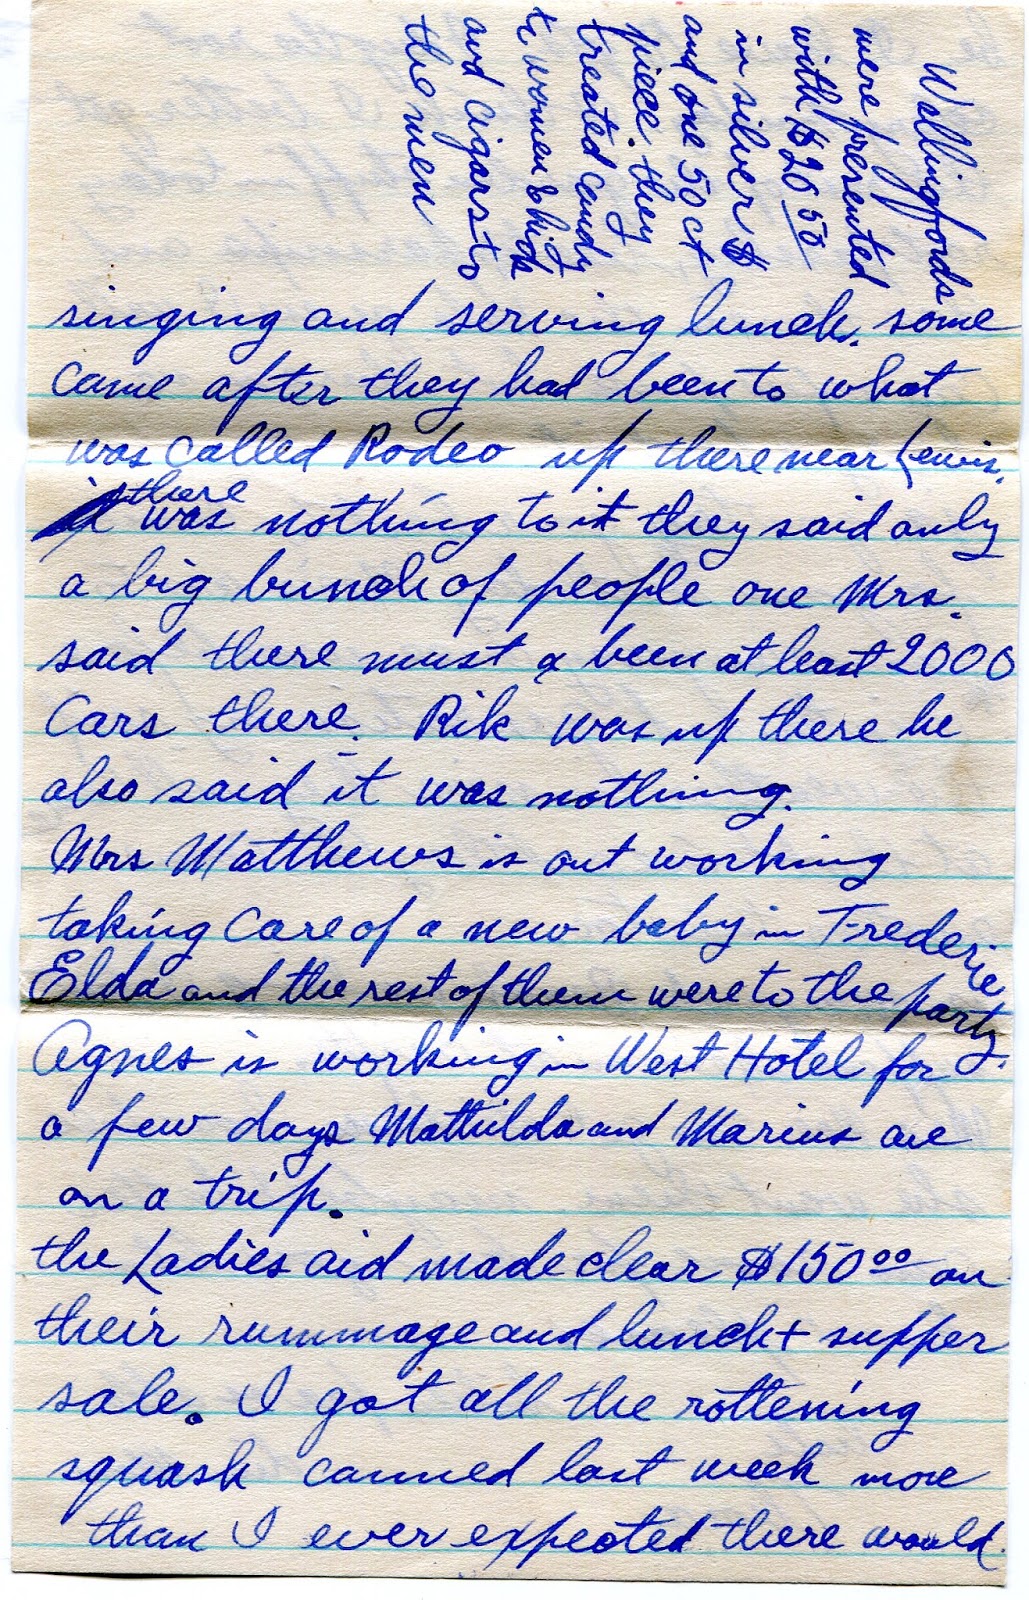 Wallingfords
were presented
with $20 50
in silver $
and one 50 ct
piece. they
treated candy
to women & kids
and cigars to
the men
singing and serving lunch. some
came after they had been to what
was called Rodeo up there near Lewis.
there
was nothing to it they said only
a big bunch of people one Mrs.
said there must a been at least 2000
Cars there. Rik was up there he
also said it was nothing.
Mrs Matthews is out working
taking care of a new baby in Frederic
Elda and the rest of them were to the party.
Agnes is working in West Hotel for
a few days Mathilda and Marius are
on a trip.
the Ladies aid made clear $150 00 on
their rummage and lunch + supper
sale. I got all the rottening
squash canned last week more
than I ever expected there would.